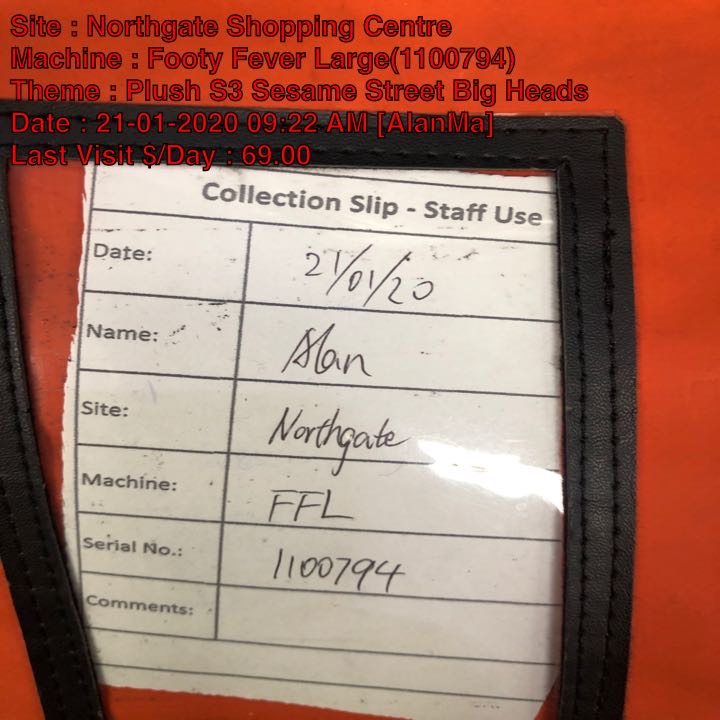 Site : Northgate Shopping Centre
Machine : Footy Fever Large(1100794)
Theme : Plush S3 Sesame Street Big Heads
Date : 21-01-2020 09:22 AM [AlanMa]
Last Visit $/Day : 69.00
Collection Slip - Staff Use
Date: 21/01/20
Name: Alan
Site: Northgate
Machine: FFL
Serial No.: 1100794
Comments: